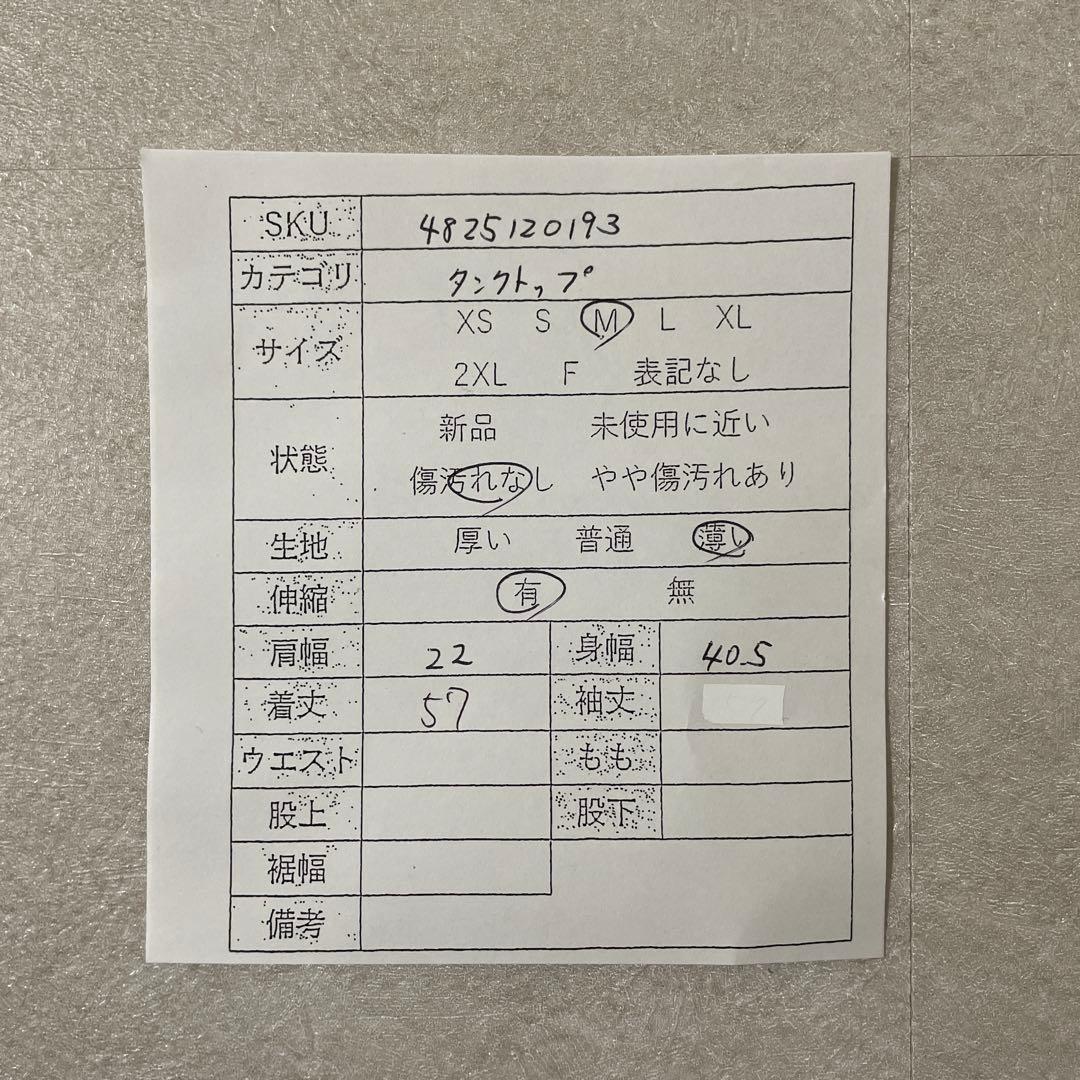 SKU 4825120193
カテゴリ タンクトップ
サイズ XS S M L XL
2XL F 表記なし
状態 新品 未使用に近い
傷汚れなし やや傷汚れあり
生地 厚い 普通 薄い
伸縮 有 無
肩幅 22 身幅 40.5
着丈 57 袖丈
ウエスト もも
股上 股下
裾幅
備考